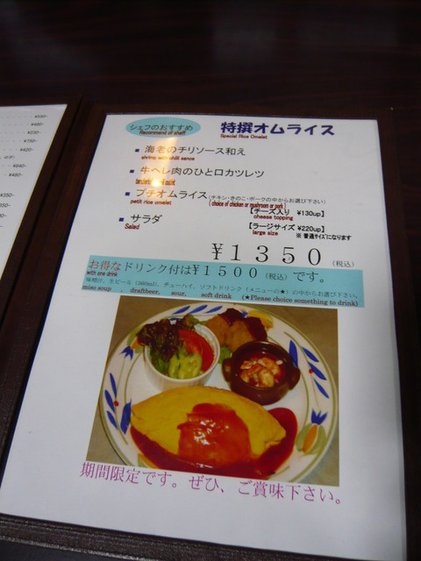 シェフのおすすめ
Recommend of sheff
特撰オムライス
Special Rice Omelet
■ 海老のチリソース和え
shrimp with chilli sauce
■ 牛ヘレ肉のひと口カツレツ
■ プチオムライス (チキン・きのこ・ポークの中からお選び下さい)
petit rice omelet (choice of chicken or mushroom or pork)
【チーズ入り ¥130up】
cheese topping
■ サラダ
Salad
【ラージサイズ ¥220up】
large size
※ 普通サイズになります
¥1350 (税込)
お得なドリンク付は¥1500 (税込) です。
with one drink
味噌汁、生ビール(360ml)、チューハイ、ソフトドリンク(メニューの★)の中からお選び下さい。
miso soup , draftbeer, sour, soft drink (★Please choice something to drink)
期間限定です。ぜひ、ご賞味下さい。